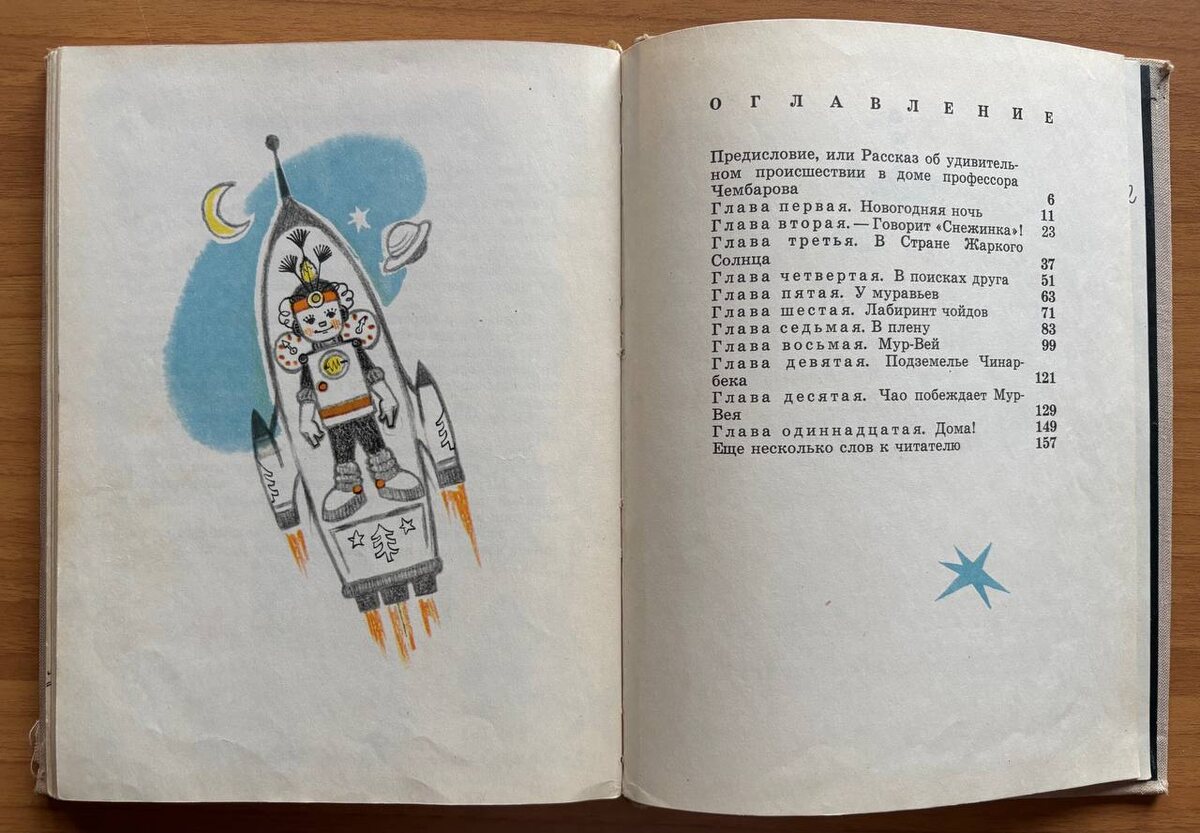 ОГЛАВЛЕНИЕ
Предисловие, или Рассказ об удивитель-
ном происшествии в доме профессора
Чембарова 6
Глава первая. Новогодняя ночь 11
Глава вторая. — Говорит «Снежинка»! 23
Глава третья. В Стране Жаркого
Солнца 37
Глава четвертая. В поисках друга 51
Глава пятая. У муравьев 63
Глава шестая. Лабиринт чойдов 71
Глава седьмая. В плену 83
Глава восьмая. Мур-Вей 99
Глава девятая. Подземелье Чинар-
бека 121
Глава десятая. Чао побеждает Мур-
Вея 129
Глава одиннадцатая. Дома! 149
Еще несколько слов к читателю 157